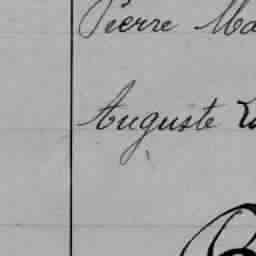 Pierre Ma
Auguste